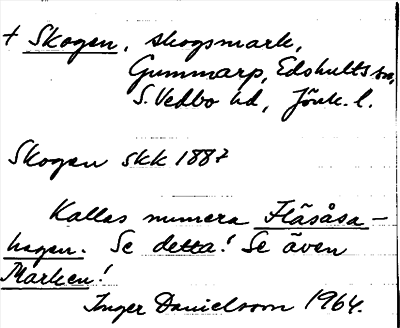 + Skogen, skogsmark,
Gummarp, Edshults sn,
S. Vedbo hd, Jönk. l.
Skogen skk 1887
Kallas numera Flåsåsa-
hagen. Se detta! Se även
Marken!
Inger Danielsson 1964.